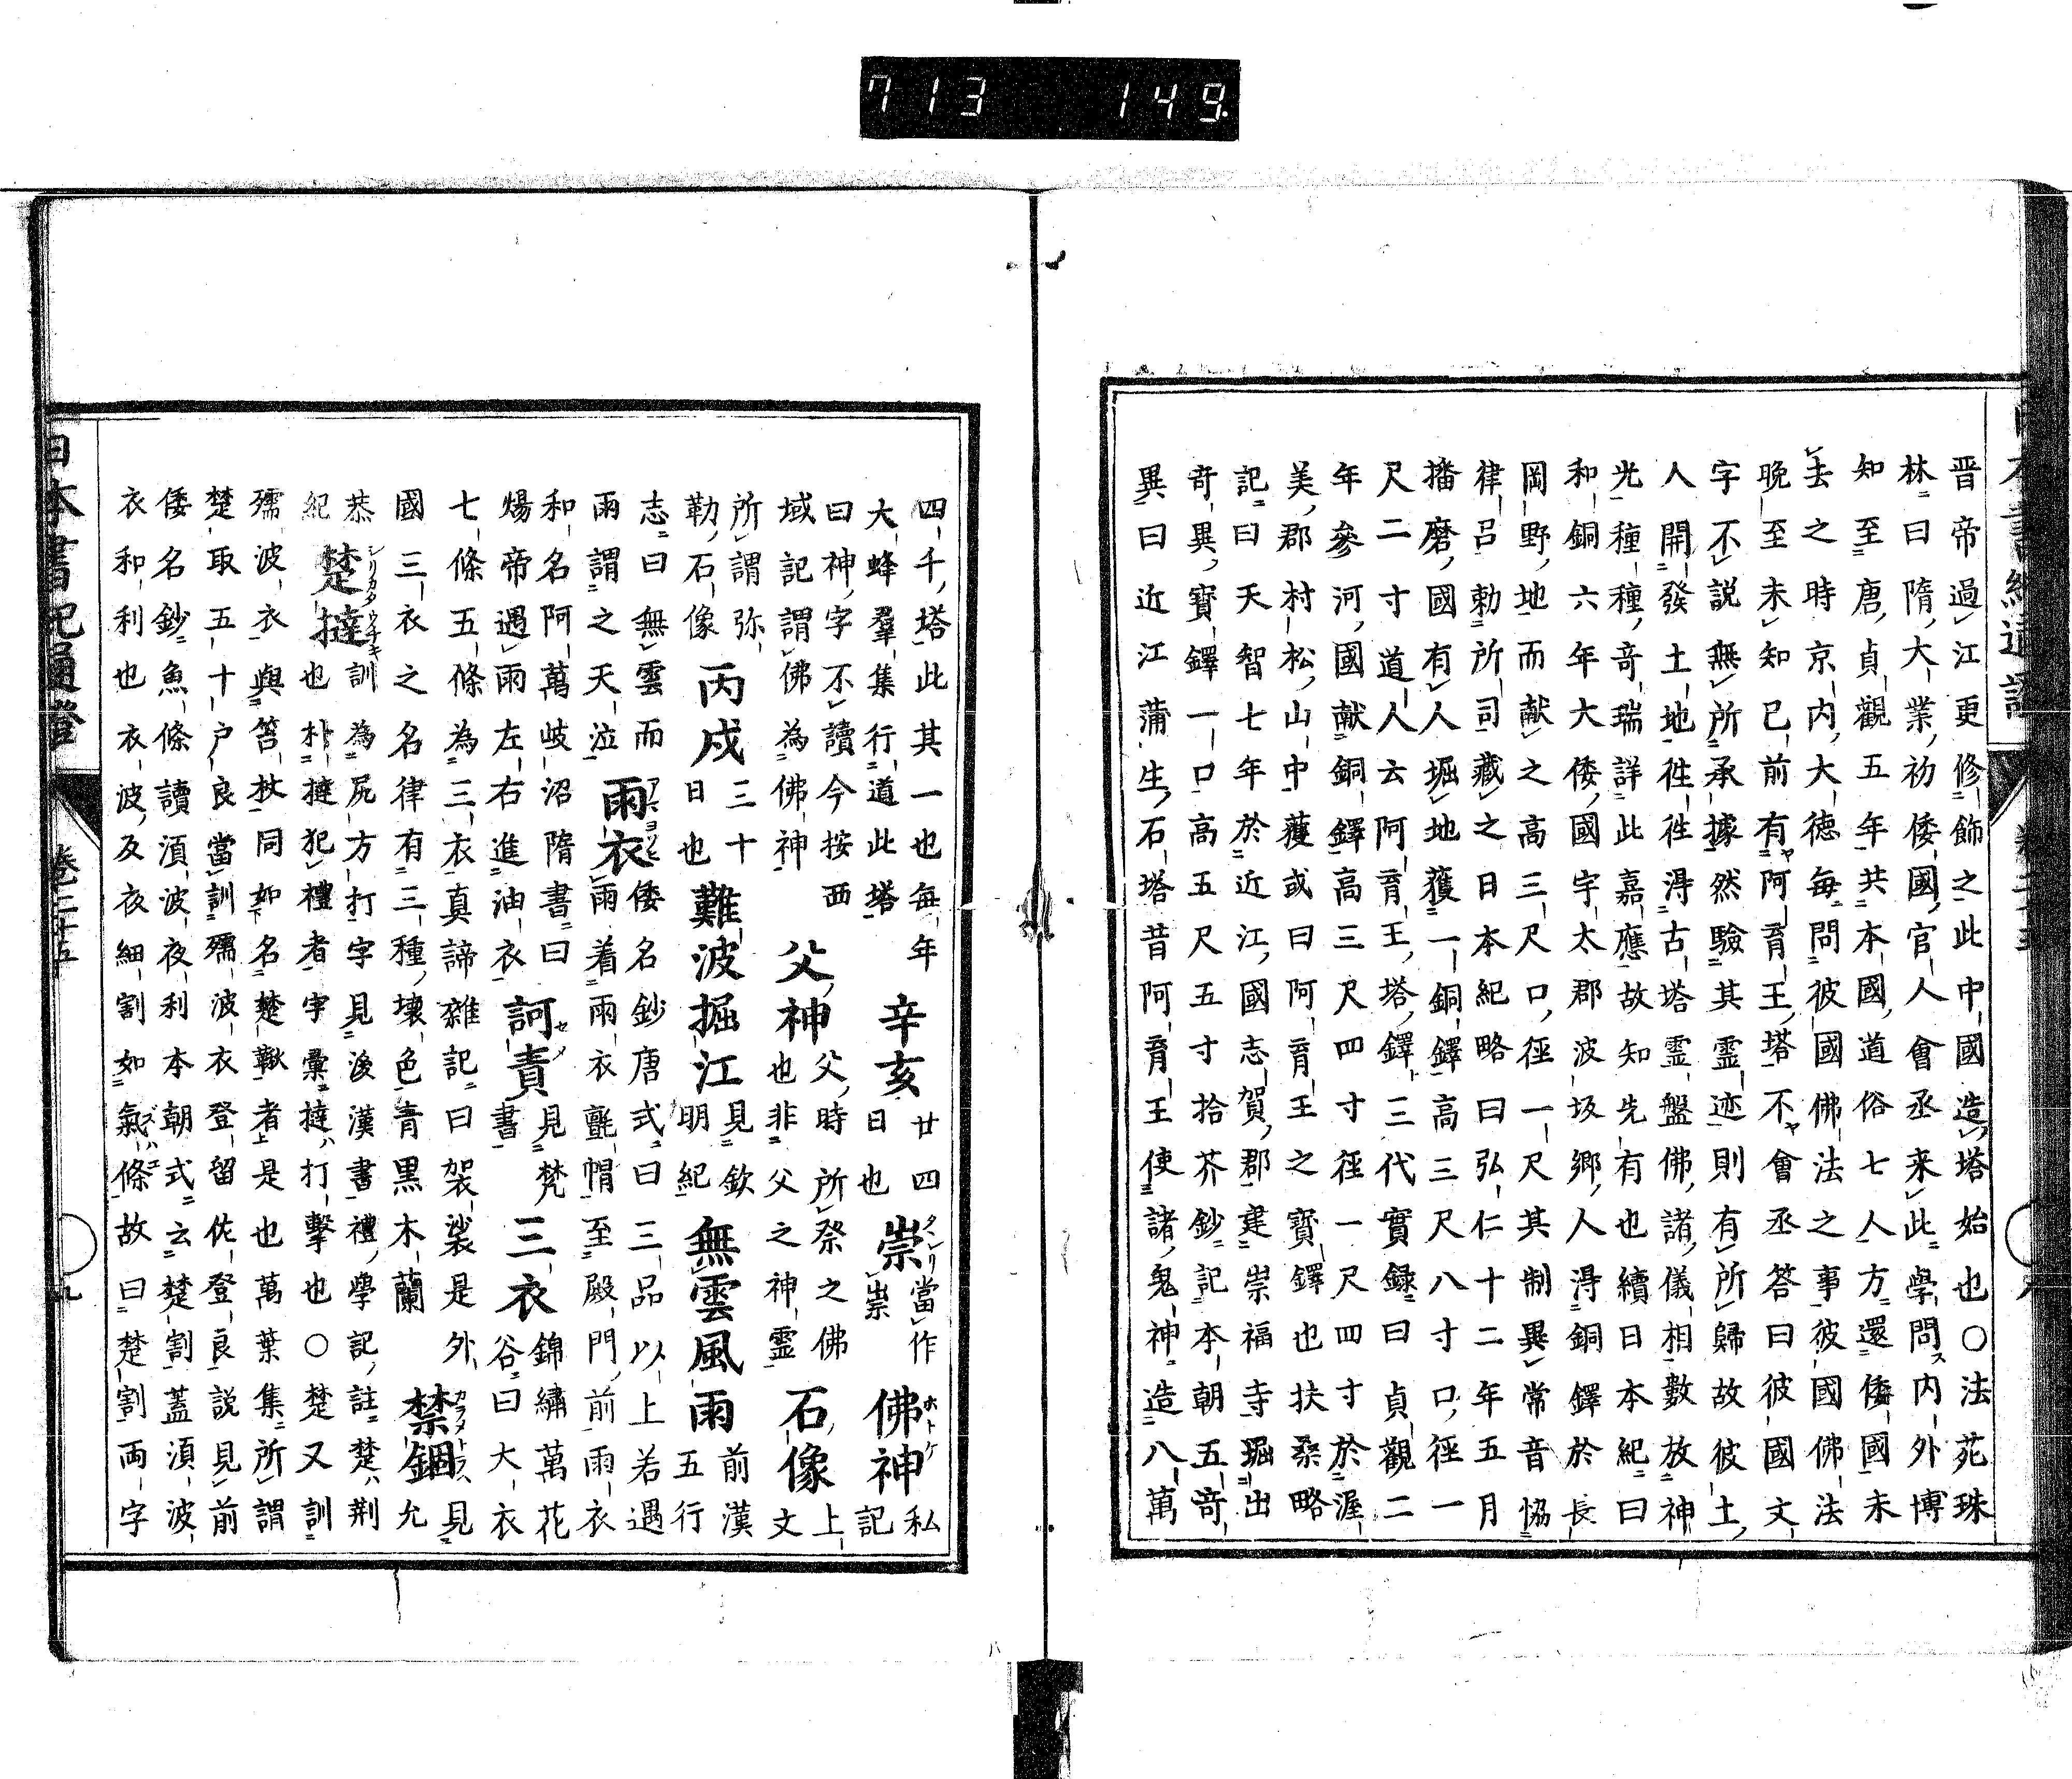 713 149.
晋帝過江更修飾之此中國造塔始也○法苑珠
林曰隋大業初倭國官人會丞来此學問内外博
知至唐貞觀五年共本國道俗七人方還倭國未
去之時京内大徳毎問彼國佛法之事彼國佛法
晩至未知已前有阿育王塔不會丞答曰彼國文
字不説無所承據然驗其霊迹則有所歸故彼土
人開發土地徃徃淂古塔霊盤佛諸儀相數放神
光種種竒瑞詳此嘉應故知先有也續日本紀曰
和銅六年大倭國宇太郡波坂郷人淂銅鐸於長
岡野地而献之高三尺口徑一尺其制異常音恊
律呂勅所司藏之日本紀略曰弘仁十二年五月
播磨國有人堀地獲一銅鐸高三尺八寸口徑一
尺二寸道人云阿育王塔鐸三代實録曰貞觀二
年參河國献銅鐸高三尺四寸徑一尺四寸於渥
美郡村松山中蔓或曰阿育王之寶鐸也扶桒略
記曰天智七年於近江國志賀郡建崇福寺堀出
竒異寶鐸一口高五尺五寸拾芥鈔記本朝五竒
異曰近江蒲生石塔昔阿育王使諸鬼神造八萬
四千塔此其一也毎年
大蜂羣集行道此塔
辛亥
廿四
日也
祟
タヽリ
當作
祟
佛神
ホトケ
私
記
曰神字不讀今按西
域記謂佛為佛神
父神
父時所祭之佛
也非父之神霊
石像
上
文
所謂弥
勒石像
丙戍
三十
日也
難波掘江
見欽
明紀
無雲風雨
前漢
五行
志曰無雲而
雨謂之天泣
雨衣
倭名鈔唐式曰三品以上若遇
雨着雨衣氈帽至殿門前雨衣
和名阿萬岐沼隋書曰
煬帝遇雨左右進油衣
訶責
セメ
見梵
書
三衣
錦繡萬花
谷曰大衣
七條五條為三衣真諦雜記曰袈裟是外
國三衣之名律有三種壊色青黒木蘭
禁錮
見
允
恭
紀
楚撻
シリカタウチキ
訓為尻方打字見後漢書禮學記註楚荆
也朴撻犯禮者字彙撻打擊也○楚又訓
殤波衣與笞杖同如名楚鞦者是也萬葉集所謂
楚取五十户良當訓殤波衣登留佐登良説見前
倭名鈔魚條讀湏波夜利本朝式云楚割蓋湏波
衣和利也衣波及夜細割如氣條故曰楚割両字
日本書紀通證
卷三十五
九